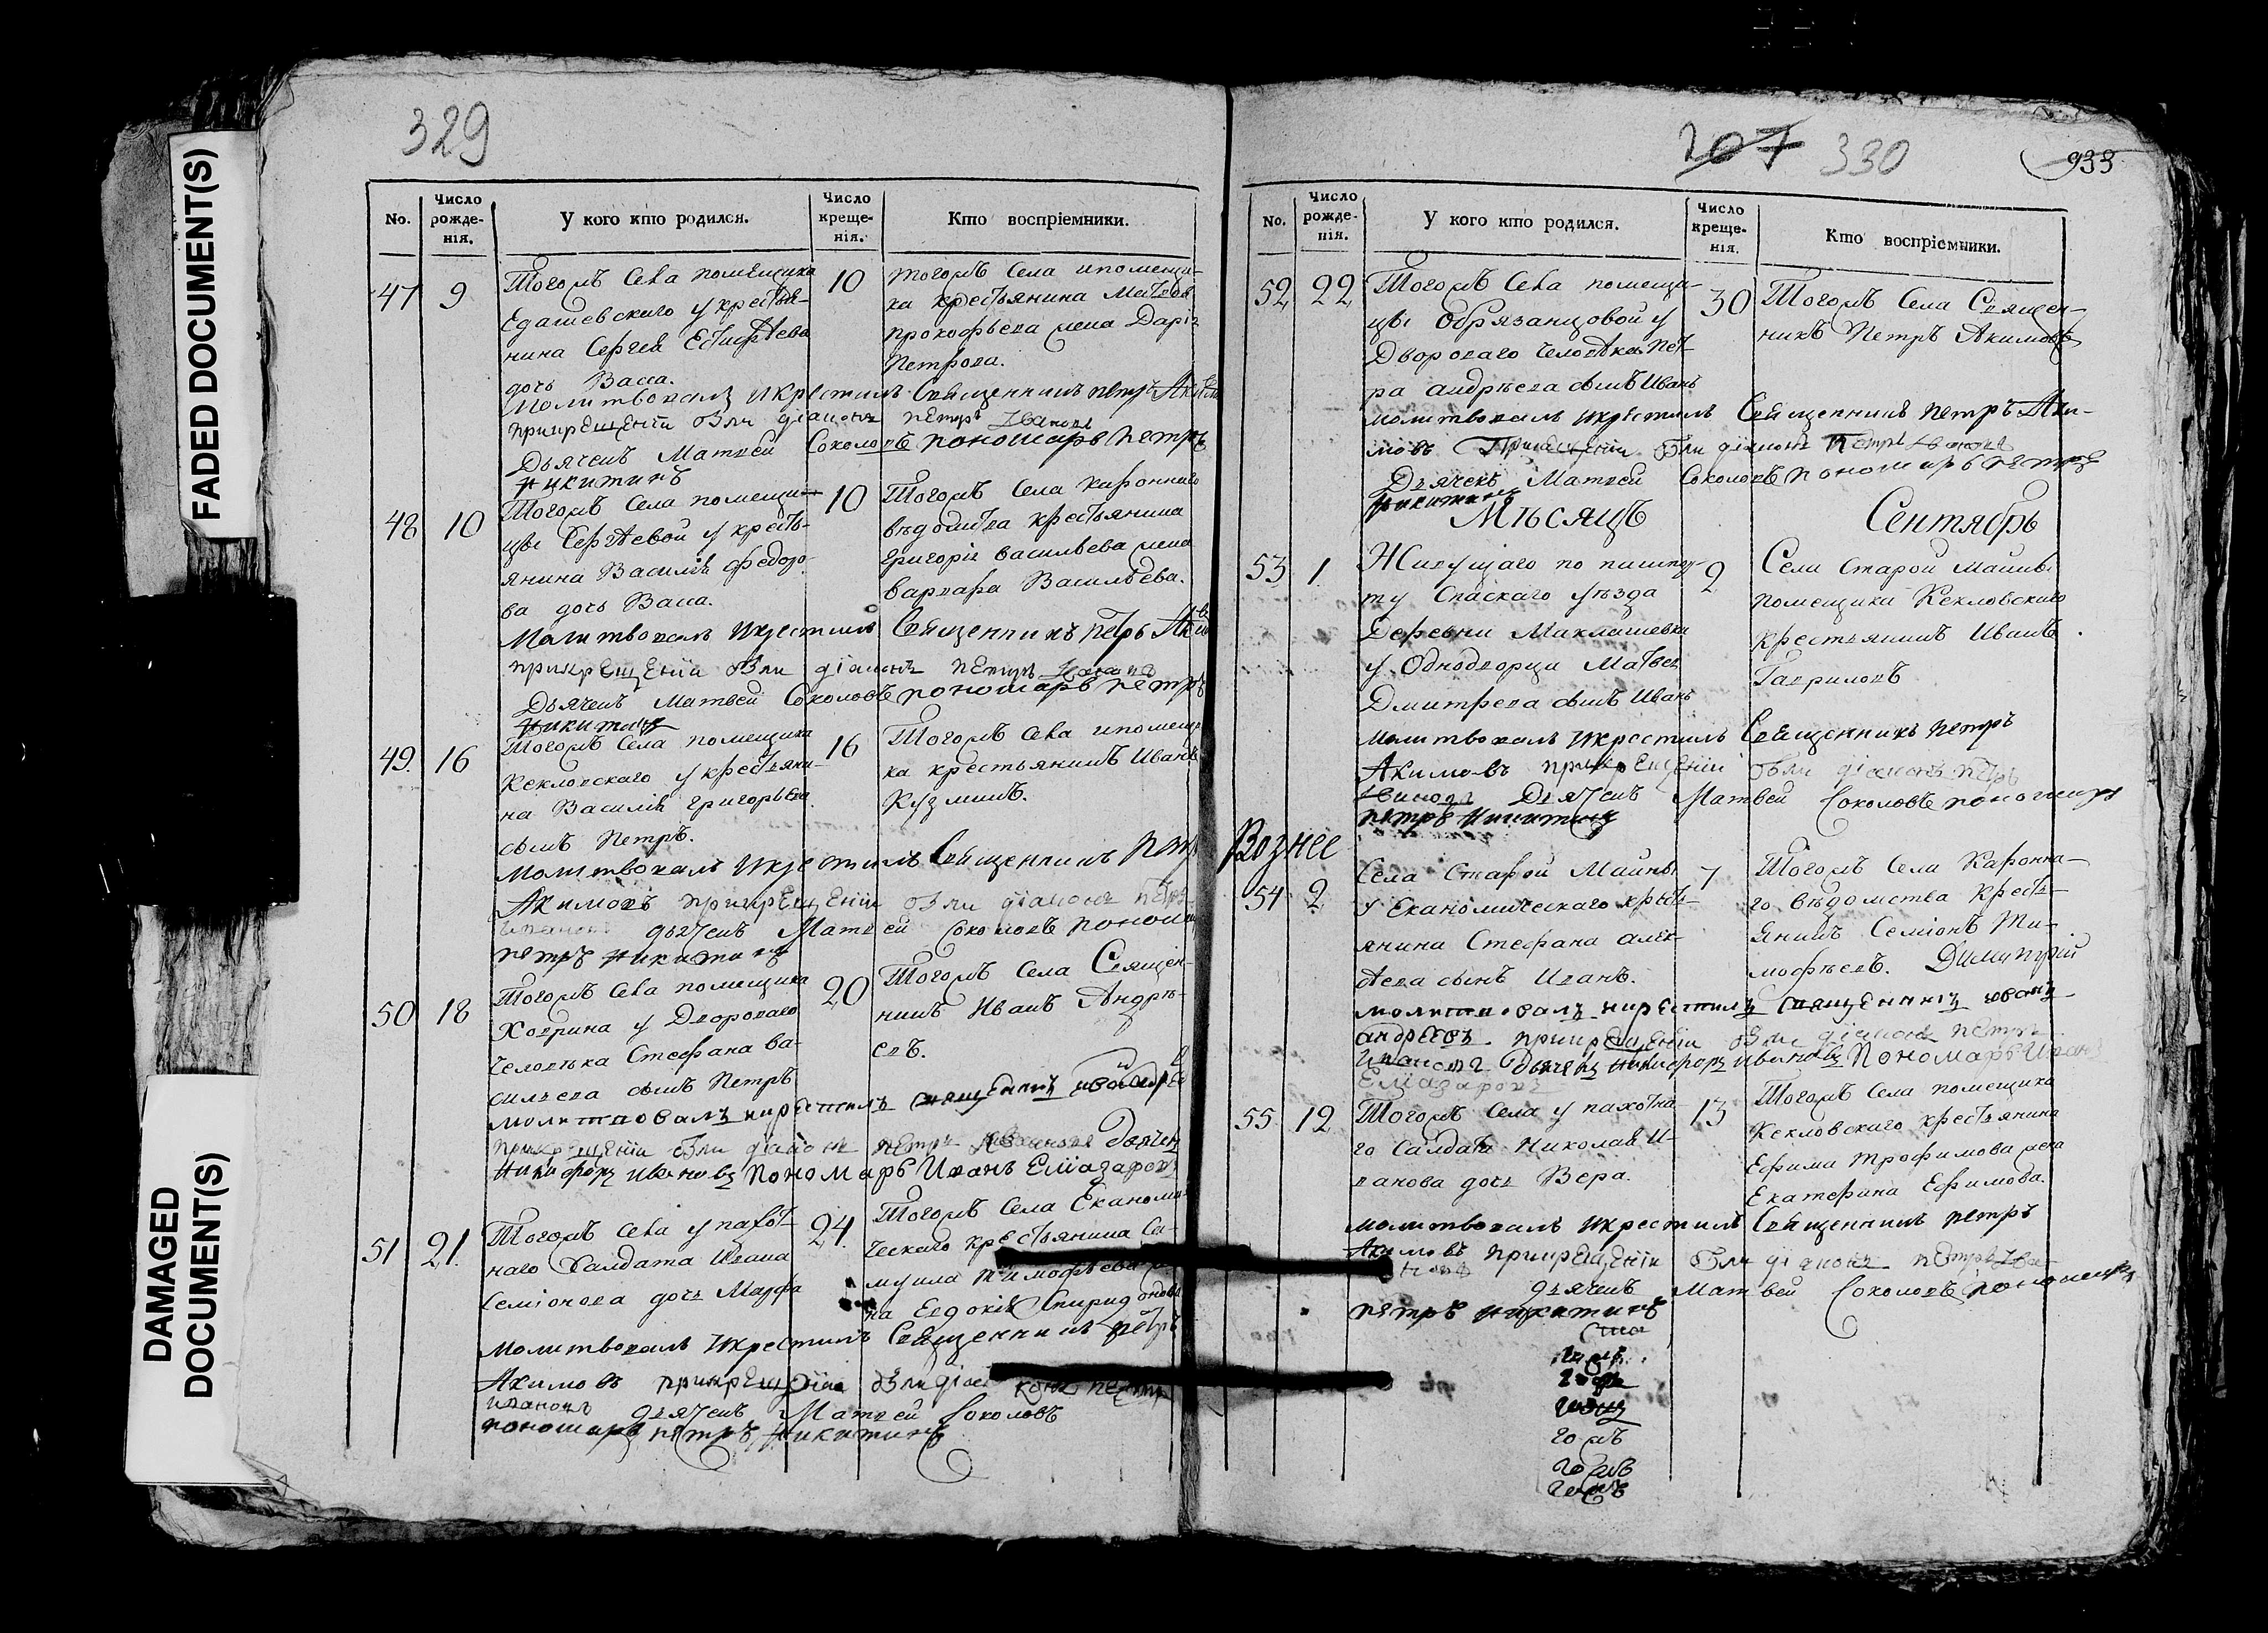 FADED DOCUMENT(S)
DAMAGED
DOCUMENT(S)
329
No.
Число рожде- нія.
У кого кто родился.
Число креще- нія.
Кто воспріемники.
47 9
Тогожъ Села помещика
Едашевскаго у крестья-
нина Сергея
дочь Васса.
10
тогожъ Села и помещи-
ка крестьянина Матвея
Прокофьева жена Дарія
Петрова.
Молитвовалъ и крестилъ Священникъ Петръ
при крещеніи были діаконъ Петръ Ивановъ
Дьячекъ Матвей Соколовъ пономарь Петръ
Никитинъ
48 10
Тогожъ Села помещи-
цы Сергѣевой у кресть-
янина Василія Федоро-
ва дочь Васса.
10
Тогожъ Села Каронного
въдомства крестьянина
Григорія Васильева жена
Варвара Васильева.
Молитвовалъ и крестилъ Священникъ Петръ
при крещеніи были діаконъ Петръ Ивановъ
Дьячекъ Матвей Соколовъ пономарь Петръ
Никитинъ
49. 16
Тогожъ Села помещика
Кекловскаго у крестьяни-
на Василія Григорьева
сынъ Петръ.
16
Тогожъ Села и помещи-
ка крестьянинъ Иванъ
Кузминъ.
Молитвовалъ и крестилъ Священникъ Петръ
Акимовъ при крещеніи были діаконъ Петръ
Ивановъ дьячекъ Матвей Соколовъ
Петръ Никитинъ
50 18
Тогожъ Села помещика
Ховрина у Двороваго
Человѣка Стефана Ва-
сильева сынъ Петръ
20
Тогожъ Села Священ-
никъ Иванъ Андрѣ-
евъ.
молитвовалъ и крестилъ священникъ иванъ
при крещеніи были діаконъ Петръ Ивановъ дьячекъ
Никифоръ Ивановъ Пономарь Иванъ Еліазаровъ
51 21.
Тогожъ Села у пахот-
наго Салдата Ивана
Семіонова дочь Марфа
24.
Тогожъ Села Економи-
ческаго крестьянина Са-
муила Тимофѣева
на Евдокія Спиридонова
Молитвовалъ и крестилъ Священникъ Петръ
Акимовъ при крещеніи были діаконъ Петръ
Ивановъ дьячекъ Матвей Соколовъ
пономарь Петръ Никитинъ
207 330
933
No.
Число рожде- нія.
У кого кто родился.
Число креще- нія.
Кто воспріемники.
52 22
Тогожъ Села помещи-
цы Обрязанцовой у
Двороваго Человѣка Пет-
ра Андрѣева сынъ Иванъ
30
Тогожъ Села Священ-
никъ Петръ Акимовъ
молитвовалъ и крестилъ Священникъ Петръ Аки-
мовъ При крещеніи были діаконъ Петръ Ивановъ
Дьячекъ Матвей Соколовъ пономарь Петръ
Никитинъ
Мѣсяцъ Сентябрь
53 1.
Живущаго по пашпор-
ту Спаскаго уѣзда
Деревни Маклашевки
у Однодворца Матвея
Дмитрева сынъ Иванъ
2
Села Старой Майны
помещика Кекловскаго
крестьянинъ Иванъ
Гавриловъ
Молитвовалъ и крестилъ Священникъ Петръ
Акимовъ при крещеніи были діаконъ Петръ
Ивановъ Дьячекъ Матвей Соколовъ пономарь
Петръ Никитинъ
54 2
Села Старой Майны
у Економическаго кресть-
янина Стефана Алек-
сѣева сынъ Иванъ.
7
Тогожъ Села Каронна-
го въдомства кресть-
янинъ Семіонъ Ти-
мофѣевъ. Димитрій
молитвовалъ и крестилъ священникъ иванъ
андреевъ при крещеніи были діаконъ Петръ
Ивановъ дьячекъ Никифоръ Ивановъ Пономарь Иванъ
Еліазаровъ
55. 12
Тогожъ Села у пахотна-
го Салдата Николая И-
ванова дочь Вера.
13
Тогожъ Села помещика
Кекловскаго крестьянина
Ефима Трофимова жена
Екатерина Ефимова.
Молитвовалъ и крестилъ Священникъ Петръ
Акимовъ при крещеніи были діаконъ Петръ Ива-
новъ дьячекъ Матвей Соколовъ пономарь
Петръ Никитинъ